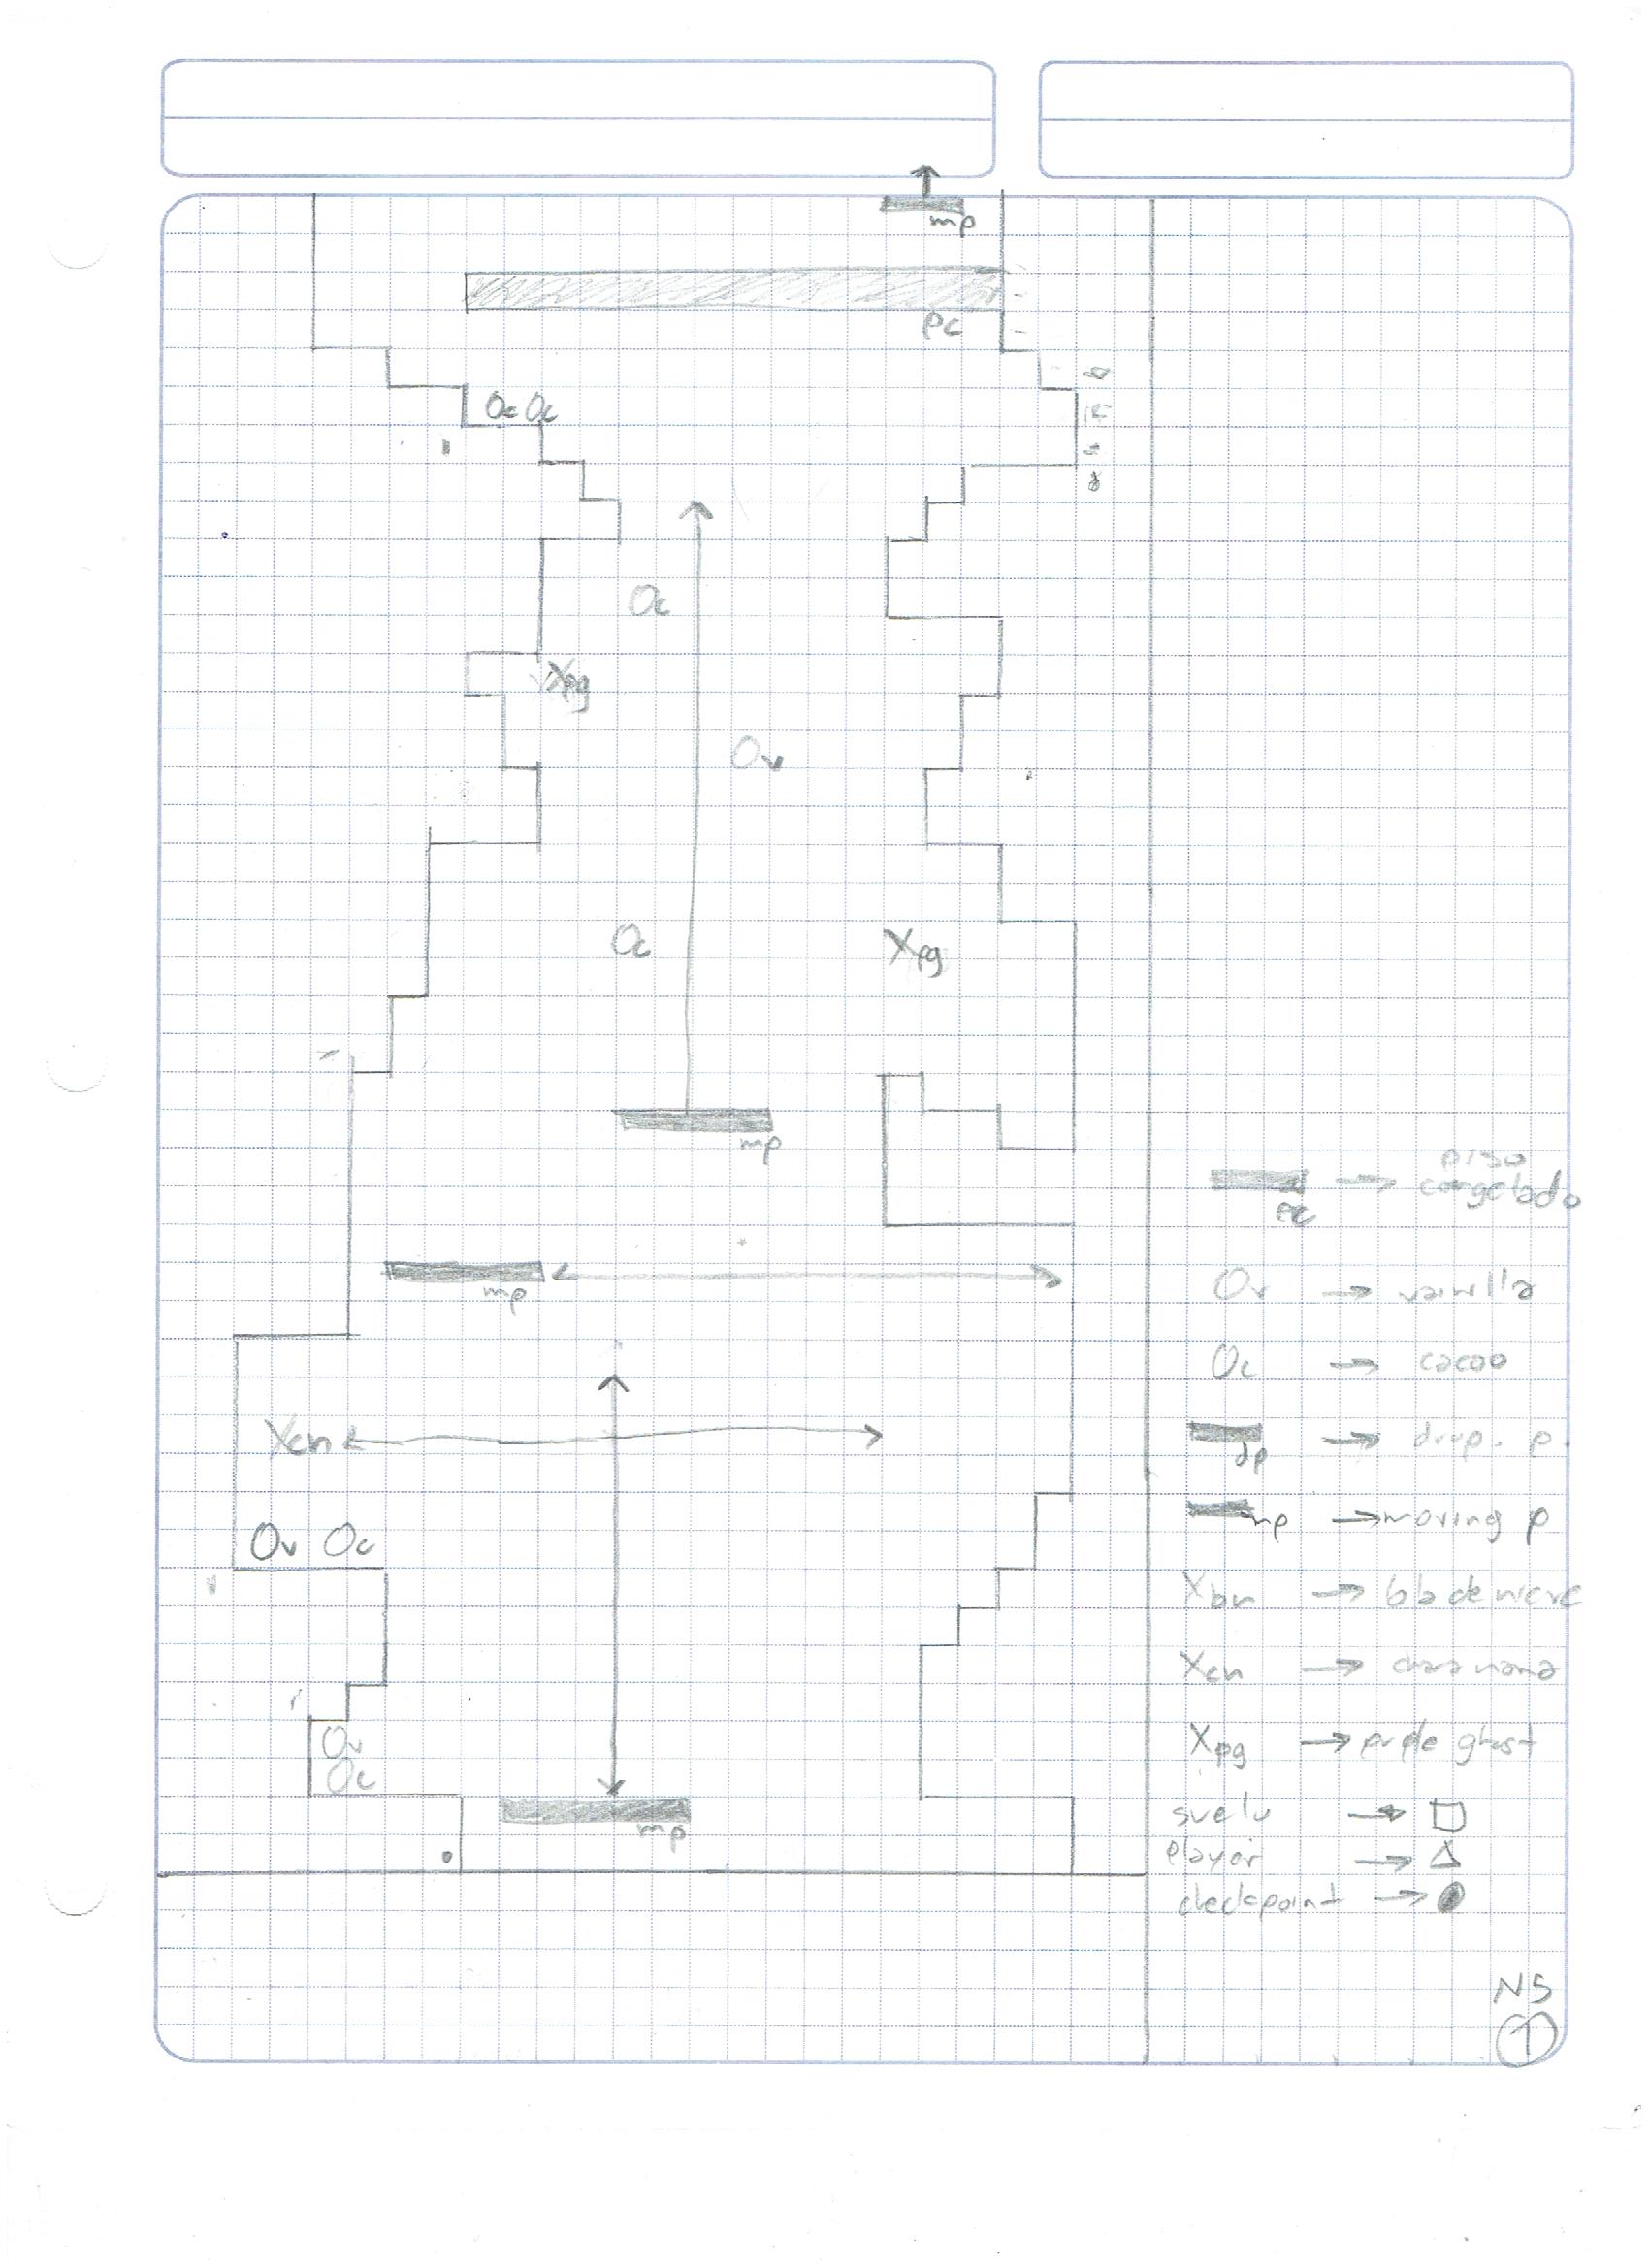 mp
pc
Oc Oc
Oc
Xpg
Ov
Oc
Xpg
mp
mp
Xcn
Ov Oc
Ov
Oc
mp
piso
congelado
pc
Ov → vainilla
Oc → cacao
dp → drop. p.
mp → moving p
Xbn → bola de nieve
Xcn
Xpg → purple ghost
suelo →
player →
checkpoint →
N5
1